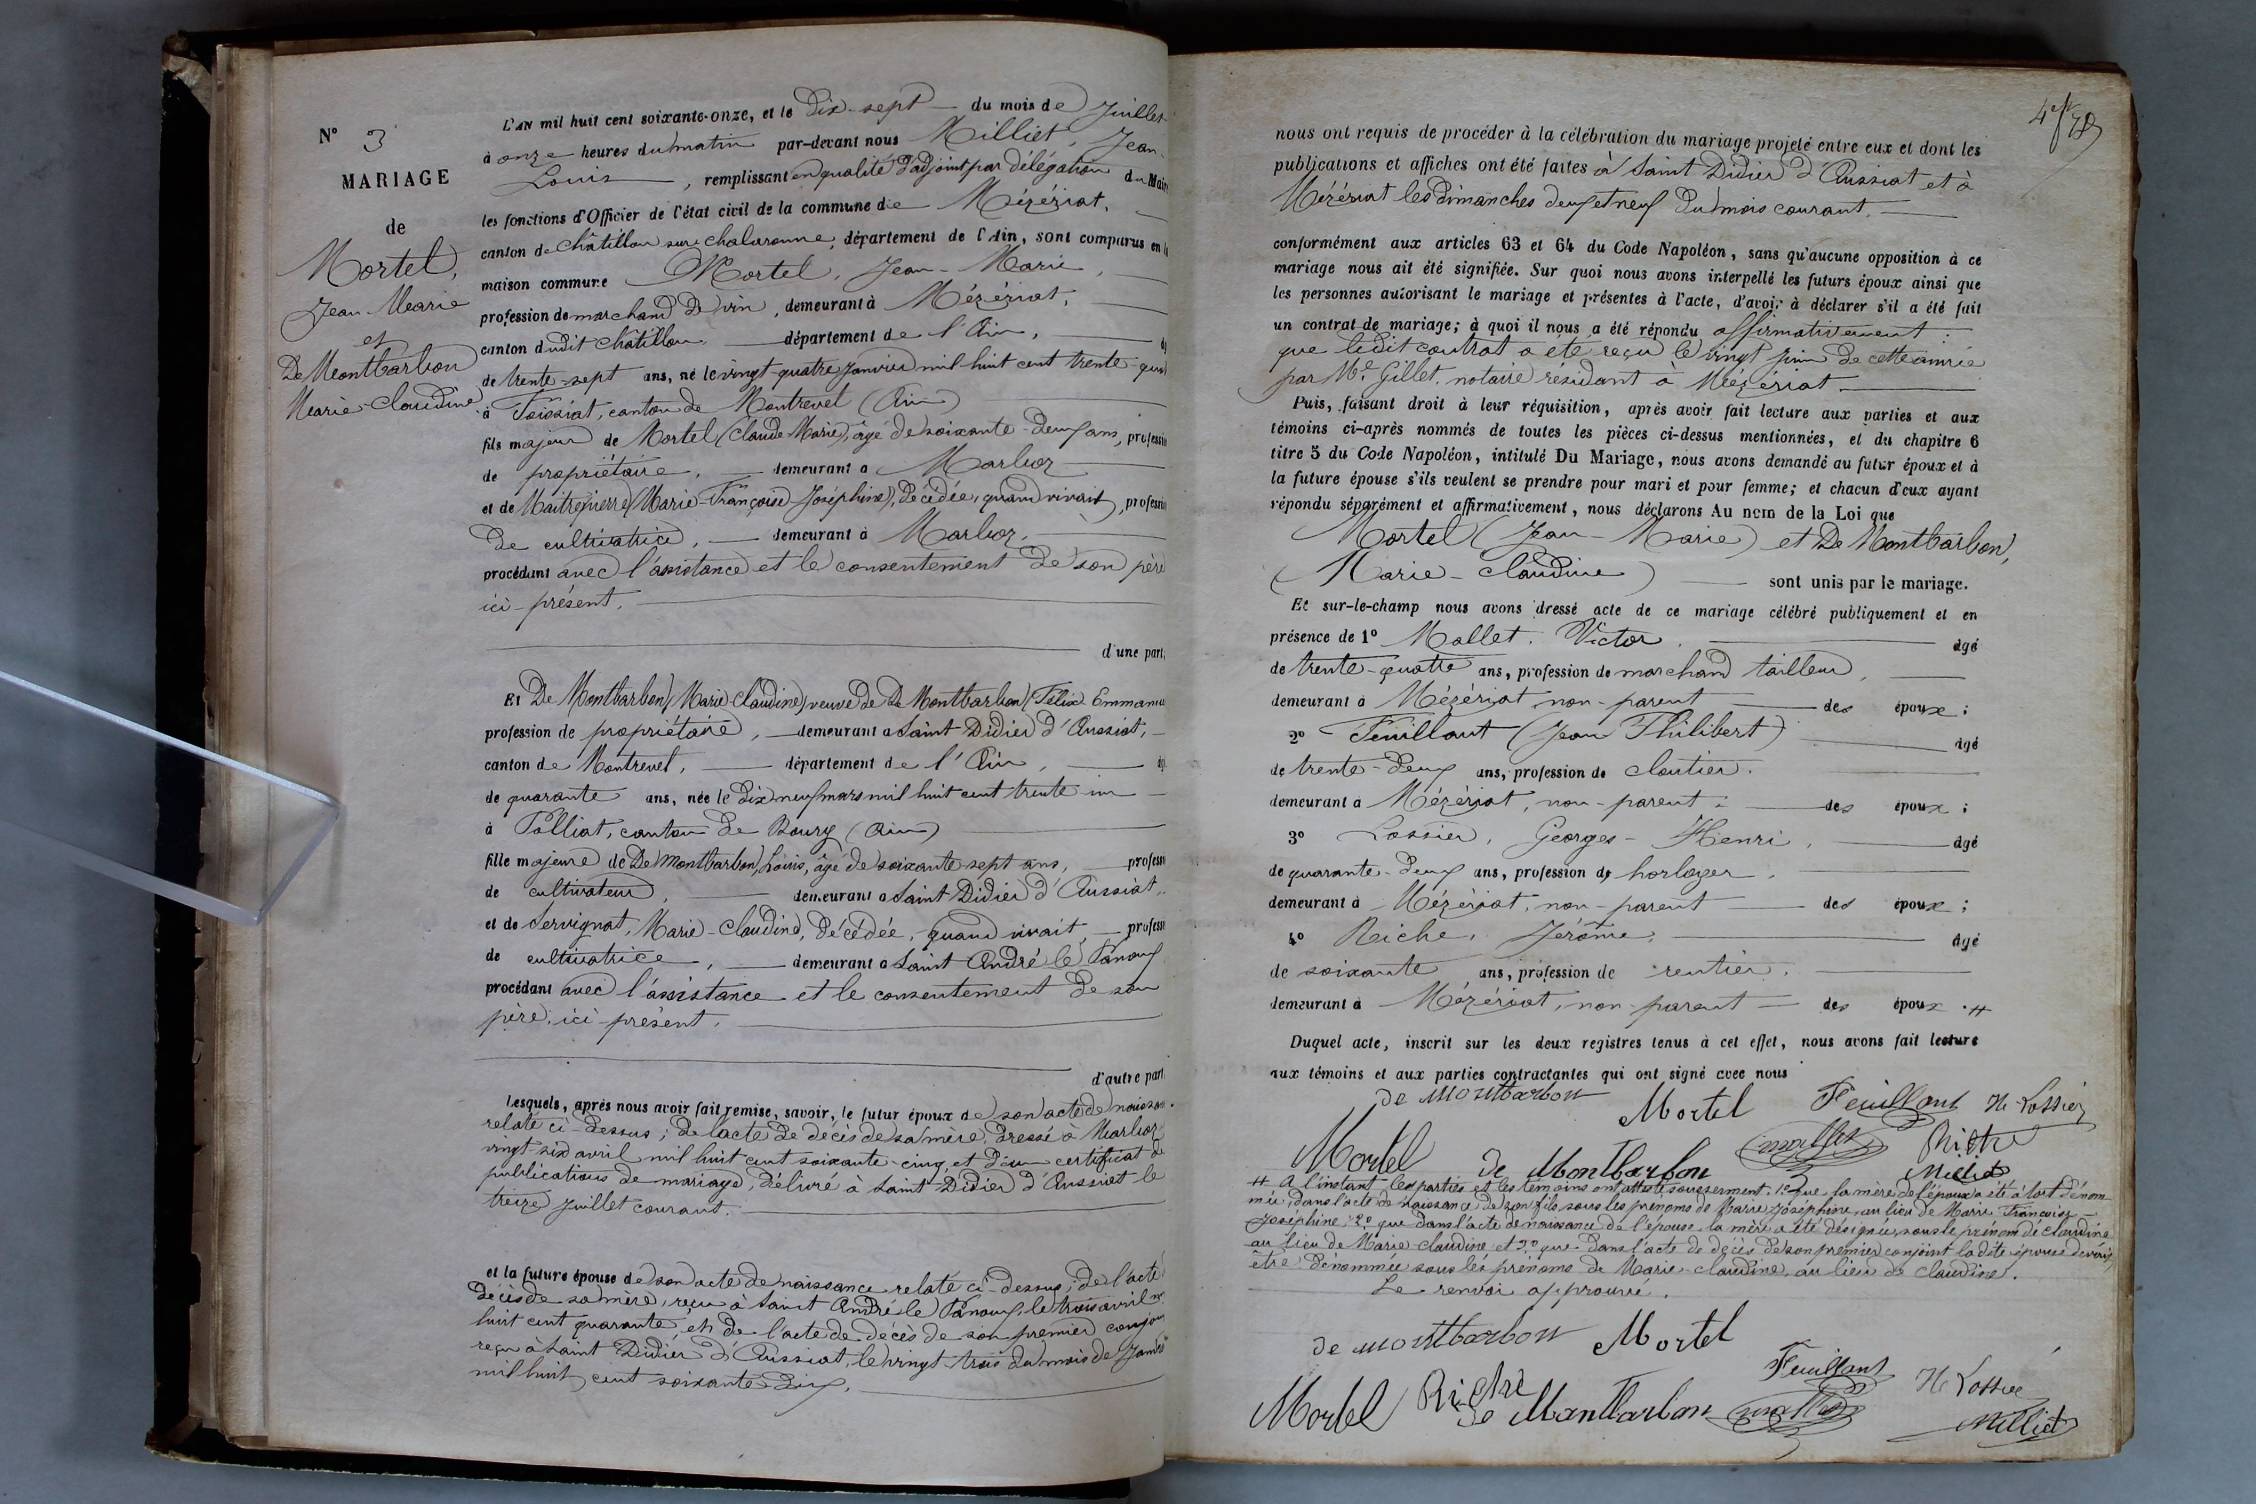 N° 3
MARIAGE
de
Mortel,
Jean-Marie
et
De Montbarbon
Marie-Claudine
L'AN mil huit cent soixante-onze, et le dix-sept du mois de Juillet
à onze heures du matin par-devant nous Milliet, Jean-
Louis, remplissant en qualité d'adjoint par délégation du Maire
les fonctions d'Officier de l'état civil de la commune de Mézériat,
canton de Châtillon sur Chalaronne, département de l'Ain, sont comparus en la
maison commune Mortel, Jean-Marie,
profession de marchand de vin, demeurant à Mézériat,
canton dudit Châtillon département de l'Ain,
de trente-sept ans, né le vingt-quatre janvier mil huit cent trente-quat
à Foissiat, canton de Montrevel (Ain)
fils majeur de Mortel (Claude Marie), âgé de soixante-deux ans, professi
de propriétaire, demeurant à Marboz
et de Maitrepierre (Marie-Françoise Joséphine), décédée, quand vivait, professi
de cultivatrice, demeurant à Marboz,
procédant avec l'assistance et le consentement de son père
ici-présent,
d'une part,
Et De Montbarbon (Marie-Claudine) veuve de De Montbarbon (Félix Emmanu
profession de propriétaire, demeurant à Saint Didier d'Aussiat,
canton de Montrevel, département de l'Ain,
de quarante ans, née le dix neuf mars mil huit cent trente-un
à Polliat, canton de Bourg (Ain)
fille majeure de De Montbarbon, Louis, âgé de soixante sept ans, profess
de cultivateur, demeurant à Saint Didier d'Aussiat,
et de Servignat, Marie-Claudine, décédée, quand vivait, profess
de cultivatrice, demeurant à Saint André le Panoux
procédant avec l'assistance et le consentement de son
père, ici-présent,
d'autre part.
Lesquels, après nous avoir fait remise, savoir, le futur époux de son acte de naissan
relaté ci-dessus; de l'acte de décès de sa mère, dressé à Marboz
vingt-six avril mil huit cent soixante-cinq, et d'un certificat de
publications de mariage, délivré à Saint Didier d'Aussiat le
treize juillet courant.
et la future épouse de son acte de naissance relaté ci-dessus; de l'acte
décès de sa mère, reçu à Saint André le Panoux, le trois avril m
huit cent quarante, et de l'acte de décès de son premier conjoin
reçu à Saint Didier d'Aussiat, le vingt trois du mois de Janvi
mil huit cent soixante dix,
nous ont requis de procéder à la célébration du mariage projeté entre eux et dont les
publications et affiches ont été faites à Saint Didier d'Aussiat et à
Mézériat les dimanches deux et neuf du mois courant,
conformément aux articles 63 et 64 du Code Napoléon, sans qu'aucune opposition à ce
mariage nous ait été signifiée. Sur quoi nous avons interpellé les futurs époux ainsi que
les personnes autorisant le mariage et présentes à l'acte, d'avoir à déclarer s'il a été fait
un contrat de mariage; à quoi il nous a été répondu affirmativement:
que ledit contrat a été reçu le vingt juin de cette année
par Me Gillet, notaire résidant à Mézériat.
Puis, faisant droit à leur réquisition, après avoir fait lecture aux parties et aux
témoins ci-après nommés de toutes les pièces ci-dessus mentionnées, et du chapitre 6
titre 5 du Code Napoléon, intitulé Du Mariage, nous avons demandé au futur époux et à
la future épouse s'ils veulent se prendre pour mari et pour femme; et chacun d'eux ayant
répondu séparément et affirmativement, nous déclarons Au nom de la Loi que
Mortel (Jean-Marie) et De Montbarbon,
(Marie-Claudine) sont unis par le mariage.
Et sur-le-champ nous avons dressé acte de ce mariage célébré publiquement et en
présence de 1° Mallet, Victor, âgé
de trente-quatre ans, profession de marchand tailleur,
demeurant à Mézériat, non-parent des époux;
2° Feuillant (Jean Philibert) âgé
de trente-deux ans, profession de cloutier.
demeurant à Mézériat, non-parent des époux;
3° Lossier, Georges-Henri, âgé
de quarante-deux ans, profession de horloger.
demeurant à Mézériat, non-parent des époux;
4° Riche, Jérôme, âgé
de soixante ans, profession de rentier.
demeurant à Mézériat, non-parent des époux.#
Duquel acte, inscrit sur les deux registres tenus à cet effet, nous avons fait lecture
aux témoins et aux parties contractantes qui ont signé avec nous
de montbarbon Mortel Feuillant H. Lossier
Mortel de Montbarbon mallet Riche
Milliet
# A l'instant les parties et les témoins ont attesté sous serment, 1° que la mère de l'époux a été à tort dénom-
mée, dans l'acte de naissance de son fils sous les prénoms de Marie Joséphine, au lieu de Marie Françoise-
Joséphine; 2° que dans l'acte de naissance de l'épouse, la mère a été désignée sous le prénom de Claudine
au lieu de Marie Claudine et 3° que dans l'acte de décès de son premier conjoint ladite épouse devrait
être dénommée sous les prénoms de Marie-Claudine, au lieu de Claudine.
Le renvoi approuvé.
de montbarbon Mortel
Feuillant H. Lossier
Mortel Riche de Montbarbon mallet Milliet